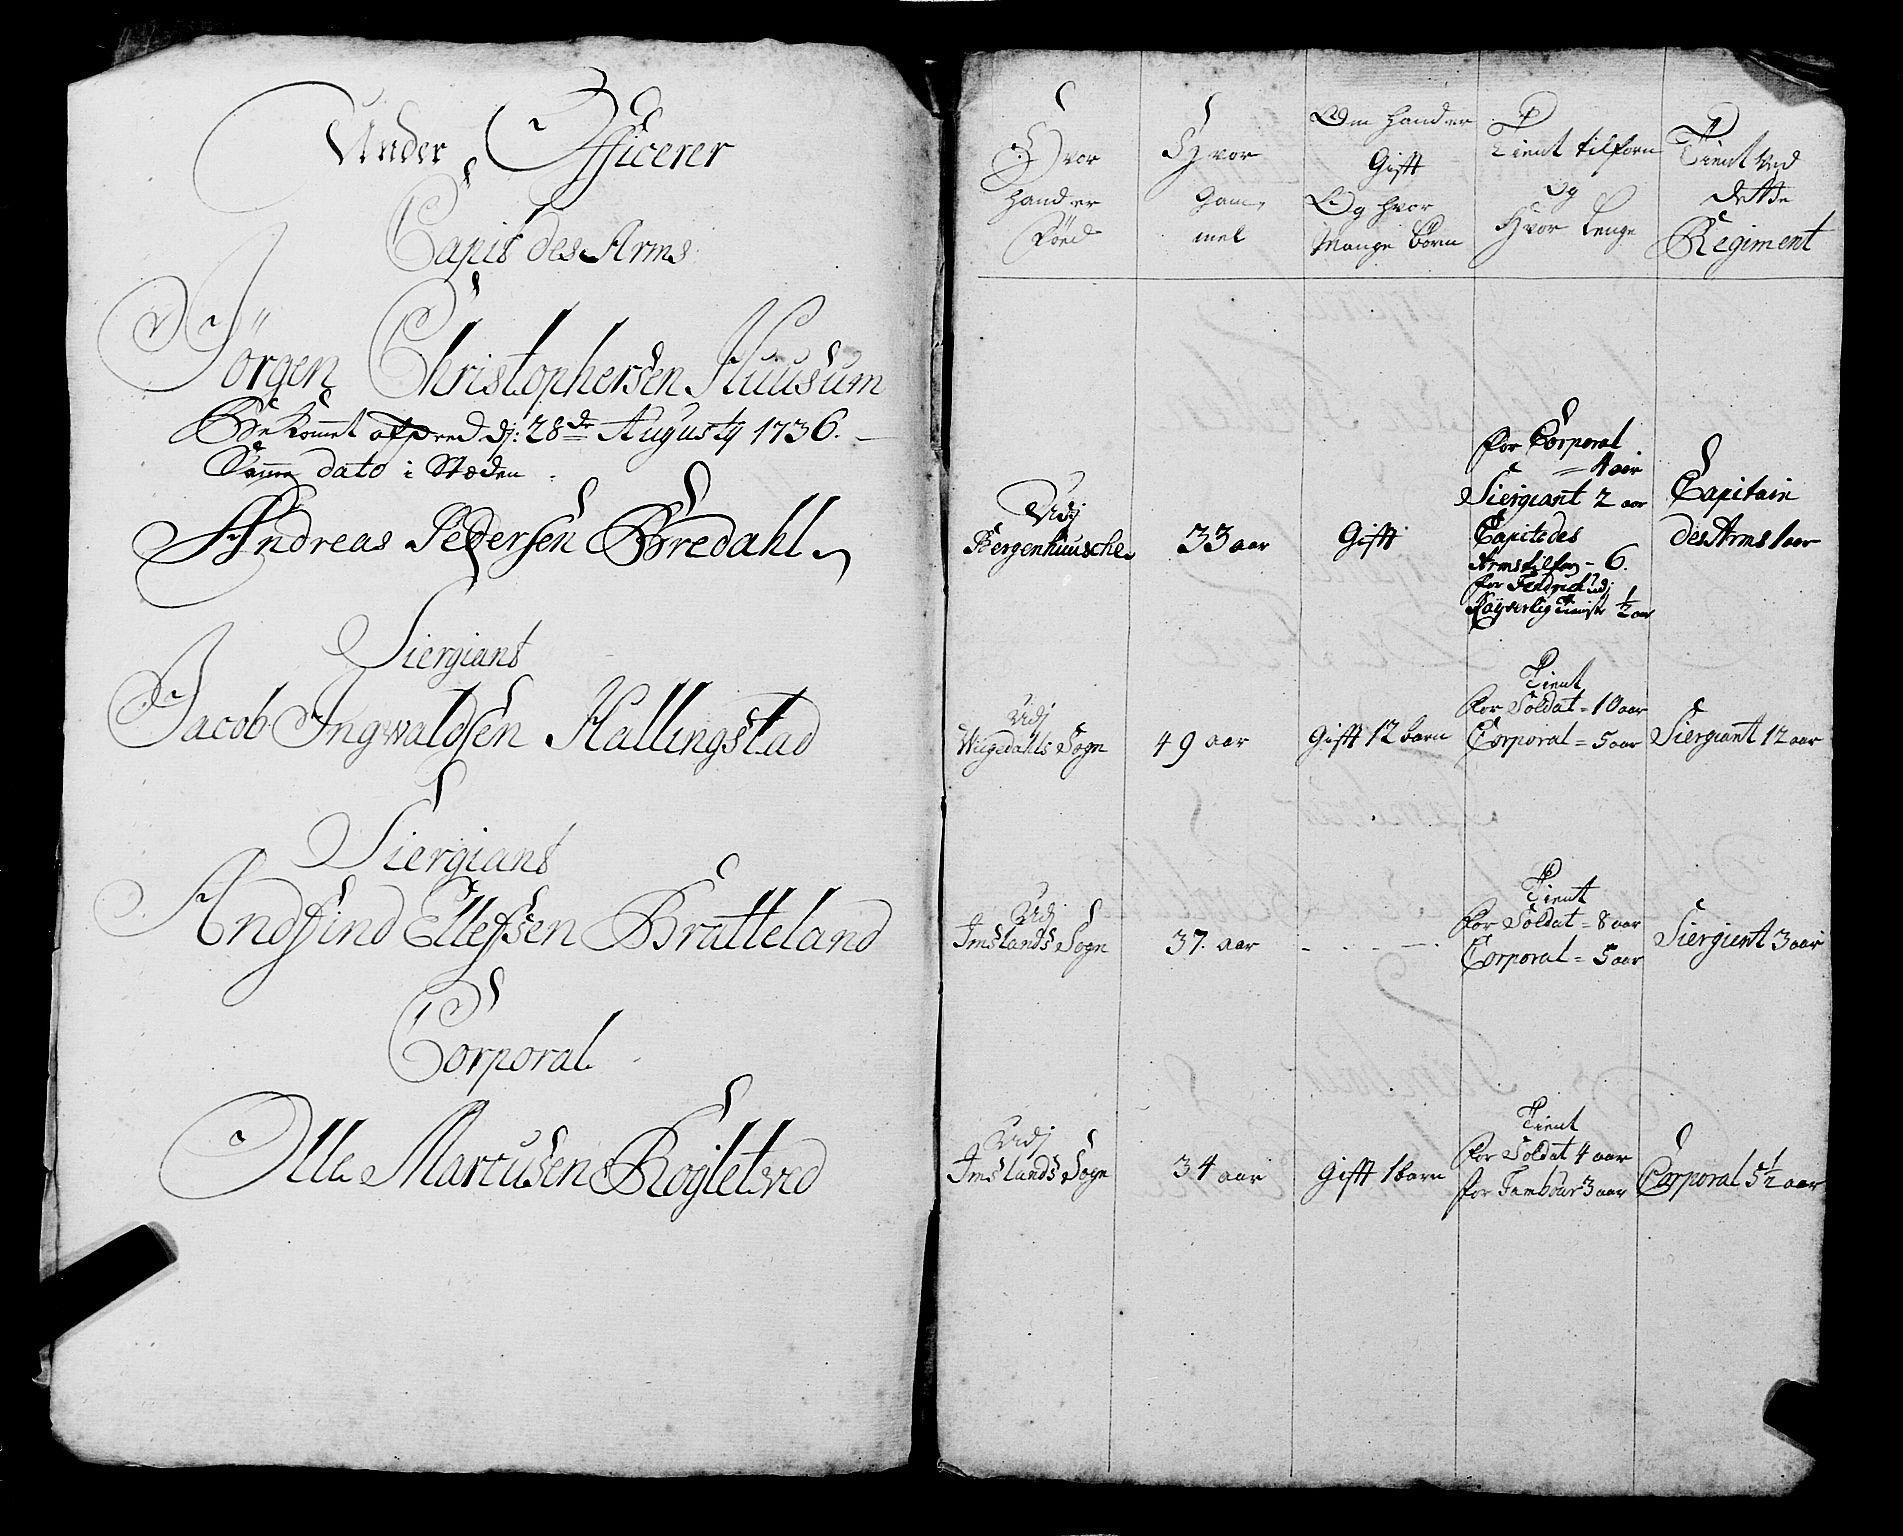 Under Officerer
Capit des Arms
Jörgen Christophersen Huusum
Bekommet afskeed dj: 28de Augustj 1736.
Samme dato i Stæden
Andreas Pedersen Bredahl
Siergiant
Jacob Ingwaldsen Hallingstad
Siergiant
Andfind Ellefsen Bratteland
Corporal
Olle Marcusen Rogletved
Hvor
hand er
Föed
Hvor
Gam,
mel
Om hand er
Gifft
Og hvor
Mange börn
Tient tilforn
og
Hvor lenge
Tient ved
dette
Regiment
Udj
Bergenhuusche
33 aar
Gifft
for Corporal
= 4 aar
Siergiant 2 aar
Capit des
Arms tilforn - 6.
for Fendrich udj
Kayserlig Tieniste ½ aar
Capitain
des Arms 1 aar
Udj
Wigedahls Sogn
49 aar
Gifft 12 barn
Tient
for Soldat = 10 aar
Corporal = 5 aar
Siergiant 12 aar
Udj
Imslands Sogn
37. aar
Tient
for Soldat = 8 aar
Corporal = 5 aar
Siergient 3 aar
Udj
Imslands Sogn
34 aar
Gifft 1 barn
Tient
for Soldat 4 aar
for Tambour 3 aar
Corporal 5½ aar